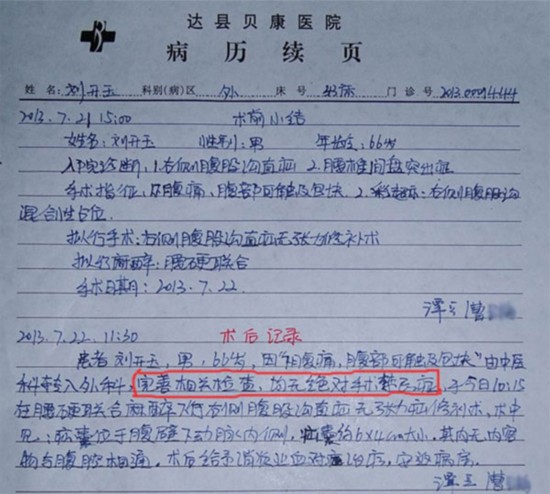 达县贝康医院
病历续页
姓名:刘开玉 科别(病)区 外 床号 门诊号 2013.0009444
2013.7.21 15:00 术前小结
姓名:刘开玉 性别:男 年龄:66岁
入院诊断:1.右侧腹股沟直疝 2.腰椎间盘突出症
手术指征:1.腹痛,腹部可触及包块。2.彩超示:右侧腹股沟
混合性占位
拟行手术:右侧腹股沟直疝无张力修补术
拟行麻醉:腰硬联合
手术日期:2013.7.22
2013.7.22. 11:30 术后记录
患者刘开玉,男,66岁,因"腹痛,腹部可触及包块"由中医
科转入外科,完善相关检查,均无绝对手术禁忌症,于今日10:15
在腰硬联合麻醉下行右侧腹股沟直疝无张力疝修补术,术中
见:疝囊位于腹壁下动脉内侧,疝囊约6x4cm大小,其内无内容
物与腹腔相通。术后给予消炎止血对症治疗,安返病房。